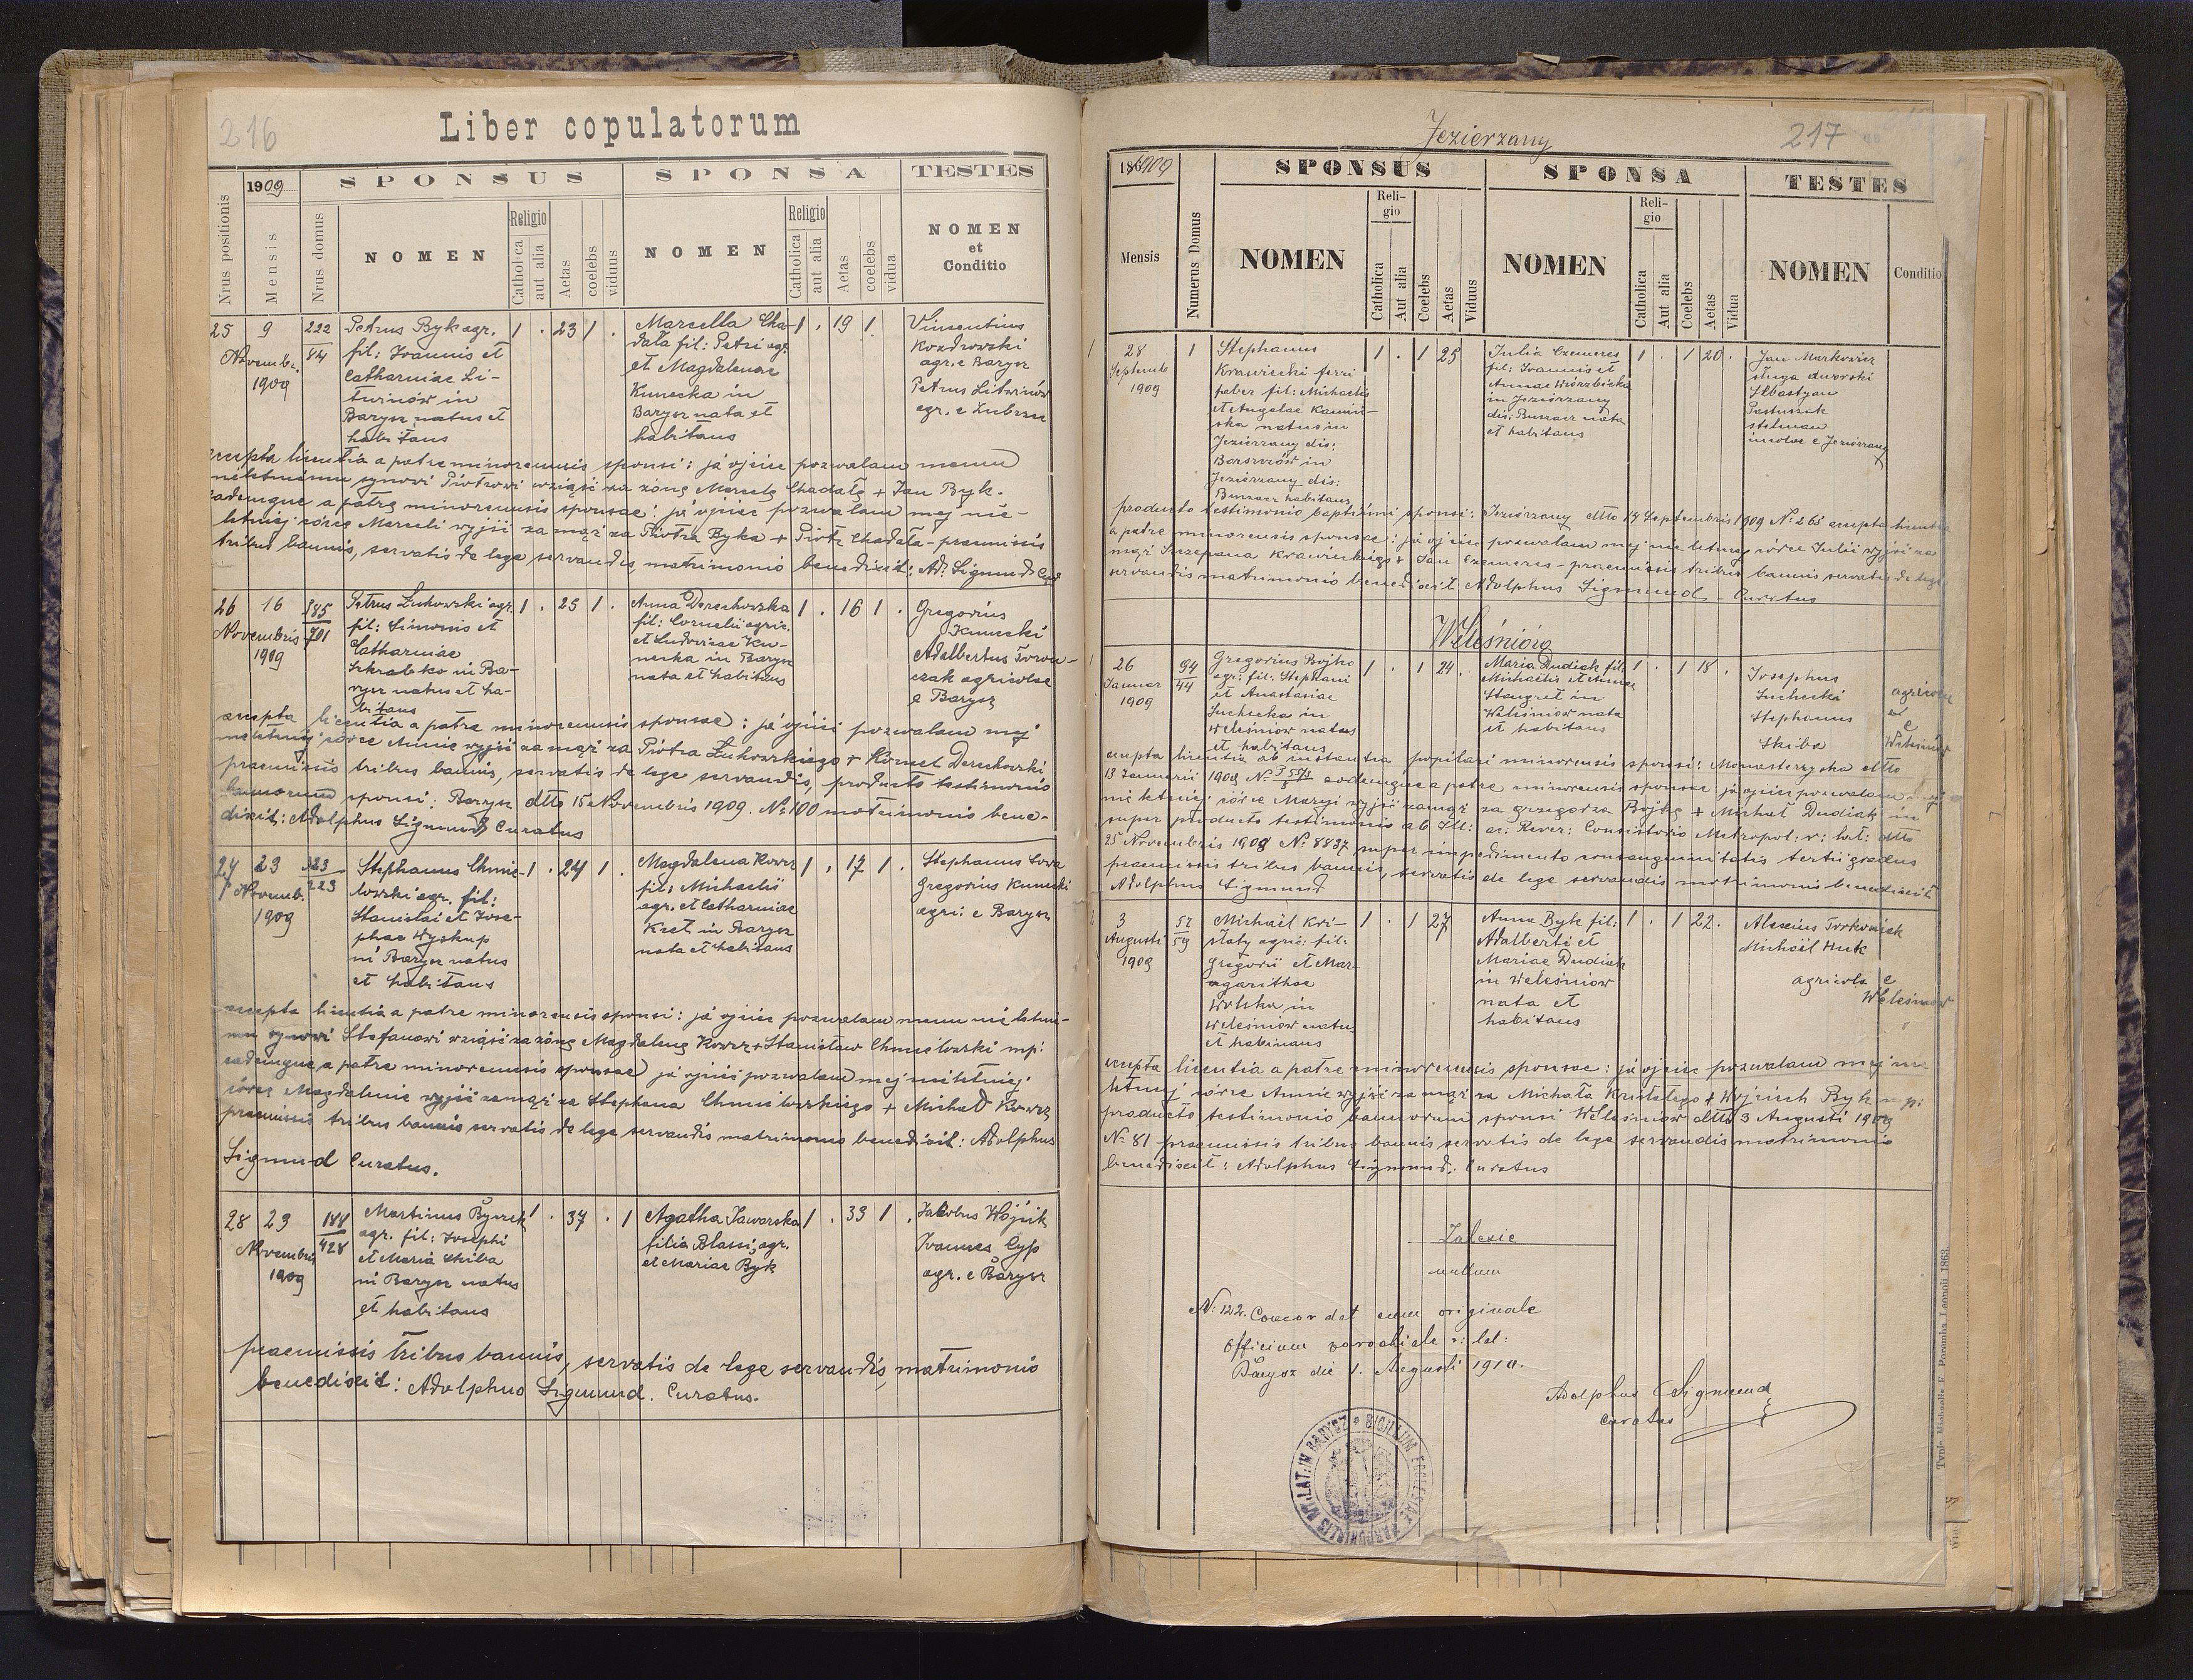 216
Liber copulatorum
Nrus positionis
1909
Mensis
Nrus domus
SPONSUS
NOMEN
Religio
Catholica
aut alia
Aetas
coelebs
viduus
SPONSA
NOMEN
Religio
Catholica
aut alia
Aetas
coelebs
vidua
TESTES
NOMEN
et
Conditio
25
9
Novembr.
1909
222
84
Petrus Byk agr.
fil: Joannis et
Catharinae Li-
twinów in
Barysz natus et
habitans
1 . 23 1 .
Marcella Cha-
dała fil: Petri agr.
et Magdalenae
Kunecka in
Barysz nata et
habitans
1 . 19 1 .
Vincentius
Kozdrowski
agr. e Barysz
Petrus Litwinów
agr. e Zubrzec
accepta licentia a patre minorennis sponsi: ja ojciec pozwalam memu
nieletniemu synowi Piotrowi wziąść za żonę Marcelę Chadałę + Jan Byk.
eademque a patre minorennis sponsae: ja ojciec pozwalam mej nie-
letniej córce Marceli wyjść za mąż za Piotra Byka + Piotr Chadała - praemissis
tribus bannis, servatis de lege servandis, matrimonio benedixit: Ad: Sigmund Cur
26
16
Novembris
1909
385
701
Petrus Żukowski agr.
fil: Simonis et
Catharinae
Schrabko in Ba-
rysz natus et ha-
bitans
1 . 25 1 .
Anna Derechowska
fil: Cornelii agric.
et Ludovicae Ku-
necka in Barysz
nata et habitans
1 . 16 1 .
Gregorius
Kunecki
Adalbertus
agricolae
e Barysz
accepta licentia a patre minorennis sponsae: ja ojciec pozwalam mej
nieletniej córce Annie wyjść za mąż za Piotra Żukowskiego + Kornel Derechowski
praemissis tribus bannis, servatis de lege servandis, producto testimonio
bannorum sponsi: Barysz dtto 15 Novembris 1909. No 100 matrimonio bene-
dixit: Adolphus Sigmund Curatus
27
23
Novemb.
1909
323
223
Stephanus Chmie-
lowski agr. fil:
Stanislai et Jose-
phae Wyskup
in Barysz natus
et habitans
1 . 24 1 .
Magdalena Kowcz
fil: Michaelis
agr. et Catharinae
Kret in Barysz
nata et habitans
1 . 17 1 .
Stephanus Sowa
Gregorius Kunecki
agri: e Barysz
accepta licentia a patre minorennis sponsi: ja ojciec pozwalam memu nieletnie-
mu synowi Stefanowi wziąść za żonę Magdalenę Kowcz + Stanisław Chmielowski mp:
eademque a patre minorennis sponsae ja ojciec pozwalam mej nieletniej
córce Magdalenie wyjść zamąż za Stephana Chmielowskiego + Michał Kowcz
praemissis tribus bannis servatis de lege servandis matrimonio benedixit: Adolphus
Sigmund Curatus.
28
23
Novembris
1909
188
428
Martinus Byczek
agr. fil: Josephi
et Maria Skiba
in Barysz natus
et habitans
1 . 37 . 1
Agatha Jaworska
filia Blasii agr.
et Mariae Byk
1 . 33 1 .
Jakobus Wójcik
Joannes Cyp
agr. e Barysz
praemissis tribus bannis, servatis de lege servandis, matrimonio
benedixit: Adolphus Sigmund. Curatus.
Jezierzany
217
1909
Mensis
Numerus Domus
SPONSUS
NOMEN
Reli-
gio
Catholica
Aut alia
Coelebs
Aetas
Viduus
SPONSA
NOMEN
Reli-
gio
Catholica
Aut alia
Coelebs
Aetas
Vidua
TESTES
NOMEN
Conditio
1
28
Septemb
1909
1
Stephanus
Krawiecki ferri
faber fil: Michaelis
et Angelae Kamin-
ska natus in
Jezierzany dis:
Borszczów in
Jezierzany dis:
Buczacz habitans
1 . 1 25
Julia Czemeres
fil: Joannis et
Annae Wierzbicka
in Jezierzany
dis: Buczacz nata
et habitans
1 . 1 20 .
Jan Markowicz
sługa dworski
Sebastyan
Pastuszak
stelmau
incolae e Jezierzany
producto testimonio baptismi sponsi: Jezierzany dtto 14 Septembris 1909 No 265 accepta licentia
a patre minorennis sponsae: ja ojciec pozwalam mej nieletniej córce Julii wyjść za
mąż Szczepana Krawieckiego + Jan Czemeres - praemissis tribus bannis servatis de lege
servandis matrimonio benedixit Adolphus Sigmund - Curatus
Weleśniów
1
26
Januar
1909
94
44
Gregorius Bojko
agr: fil: Stephani
et Anastasiae
Suchecka in
Weleśniow natus
et habitans
1 . 1 24 .
Maria Dudiak fil:
Michaelis et Annae
Staugret in
Weleśniow nata
et habitans
1 . 1 18 .
Josephus
Suchecki
Stephanus
Skiba
agricolae
e
Weleśniów
accepta licentia ab instantia pupilari minorennis sponsi: Monasterzyska dtto
13 Januarii 1909 No eademque a patre minorennis sponsae ja ojciec pozwalam mej
nieletniej córce Maryi wyjść zamąż za Grzegorza Bojkę + Michał Dudiak in
super producto testimonio ab Ill: ac. Rever: Consistorio Metropol: r: lat: dtto
25 Novembris 1908 No 8837 super impedimento consanguinitatis tertii gradus
praemissis tribus bannis, servatis de lege servandis matrimonio benedixit
Adolphus Sigmund
2
3
Augusti
1909
57
59
Michaël Kri-
staty agric: fil:
Gregorii et Mar-
garithae
Wolska in
Weleśniow natus
et habitans
1 . 1 27
Anna Byk fil:
Adalberti et
Mariae Dudiak
in Weleśniow
nata et
habitans
1 . 1 22 .
Alexius
Michaël Huk
agricolae e
Weleśniów
accepta licentia a patre minorennis sponsae: ja ojciec pozwalam mej nie
letniej córce Annie wyjść za mąż za Michała Kristatego + Wojciech Byk mp:
producto testimonio bannorum sponsi Weleśniów dtto 3 Augusti 1909
No 81 praemissis tribus bannis servatis de lege servandis matrimonio
benedixit: Adolphus Sigmund. Curatus
Zalesie
nullum
No: 122. Concordat cum originale
Officium parochiale r: lat:
Barysz die 1. Augusti 1910.
Adolphus Sigmund
curatus
SIGILLUM ECCLESIAE PAROCHIALIS RIT: LAT: IN BARYSZ
Typis Michaelis F. Poremba Leopoli 1863.